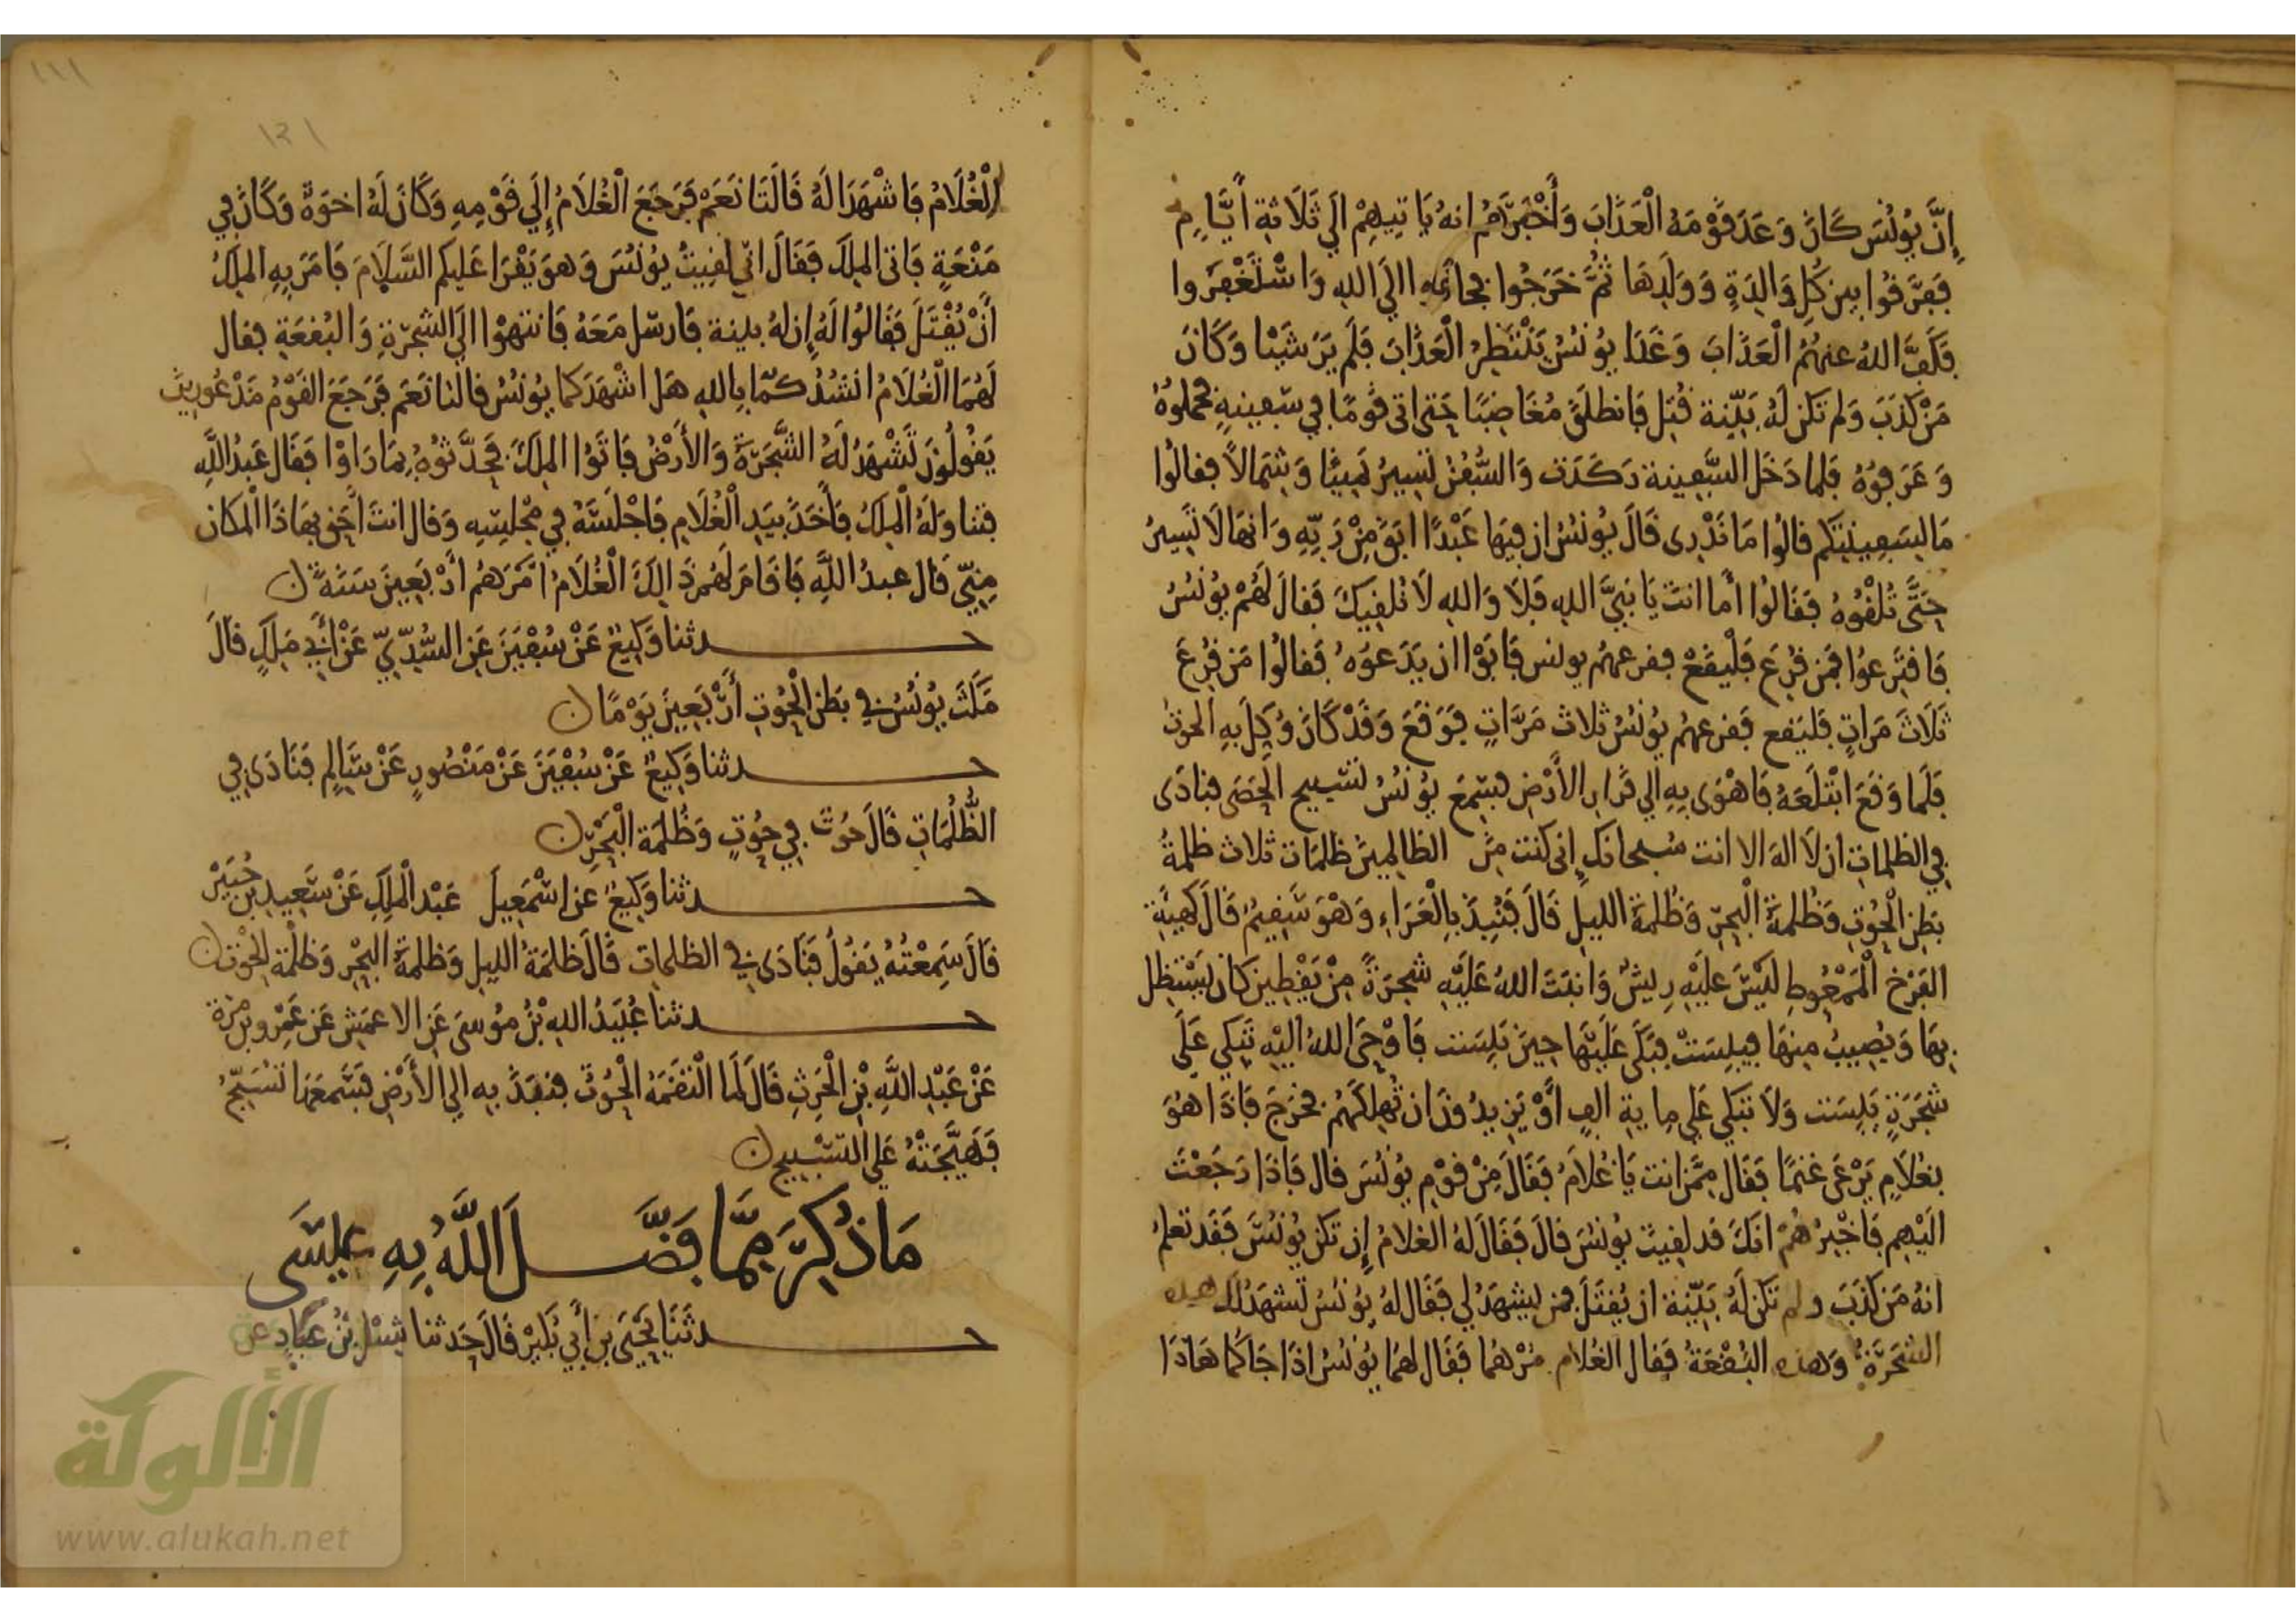 إِنَّ يُونُسَ كَانَ وَعَدَ قَوْمَهُ الْعَذَابَ وَأَخْبَرَهُم انهُ يَاتِيهِمْ الَي ثَلَاثةِ أَيَّامٍ
فَفَرَّقُوا بين كُلِّ وَالِدَةٍ وَوَلَدِهَا ثُمَّ خَرَجُوا فجاءروا الَي اللهِ وَاسْتَغْفَرُوا
فَكَفَّ اللهُ عنهُمُ الْعَذَابَ وَغَدَا يُونُسُ يَنْتَظِرُ الْعَذَابَ فَلَم يَرَ شَيْئا وَكَانَ
مَنْ كَذَبَ وَلم تكن لَهُ بَيّنة قُتِل فَانطلَقَ مُغَاضِبًا حَتى اتى قَومًا في سَفِينةٍ فحملوهُ
وَعَرَفوُهُ فلما دَخَل السَّفِينة رَكَدَت وَالسُّفُنُ تَسِيرُ يَمِينًا وَشِمَالاً فقالُوا
مَا لِسَفِينَتِكم قالُوا مَا نَدْرِى قَالَ يُونُسُ ان فِيهَا عَبْدًا ابَقَ مِنْ رَبِّهِ وَانهَا لَا تَسِيرُ
حَتَّى تُلْقُوهُ فَقَالُوا أَما انتَ يَا نَبِيَّ اللهِ فَلَا وَاللهِ لَا نُلقِيكَ فَقالَ لَهُمْ يُونُسُ
فَاقتَرِعوُا فَمَن قُرِعَ فَلْيَقَعْ فقرعهُم يونس فَابَوْا ان يَدَعوُهُ فَقالُوا مَن قُرِعَ
ثَلَاثَ مَراتٍ فَليَقع فَقرعهُم يُونُسُ ثلاث مَرَّاتٍ فَوَقَعَ وَقَدْ كَانَ وُكِلَ بِهِ الحوتُ
فَلَما وَقَعَ ابْتَلَعَهُ فَاهْوَى بِهِ الي قَرَارِ الأَرْضِ فسَمِعَ يُونُسُ تَسْبيح الحَصَى فنادَى
فِي الظلماتِ ان لَا الهَ الا انت سُبحانَكَ إِنى كنت مِنَ الظالِمِينَ ظلمَات ثلاث ظلمةُ
بَطنِ الْحُوتِ وَظُلمَةُ الْبَحْرِ وَظُلمَة الليلِ قَالَ فَنُبِذَ بِالْعَرَاءِ وَهْوَ سَقِيمٌ قَالَ كَهيئَةِ
الفَرْخِ الْمَمْعُوطِ لَيْسَ عَليْهِ رِيشٌ وَانبَتَ اللهُ عَلَيْهِ شجَرَةً مِنْ يَقْطِين كان يَسْتظل
بِهَا وَيُصِيبُ مِنهَا فيبِسَتْ فبَكَى عَلَيْهَا حِينَ يَبِسَت فَاوْحَى اللهُ اليْهِ تَبكي عَلَى
شجَرَةٍ يَبِسَت وَلَا تبكي عَلي مِايةِ الفٍ أَوْ يَزِيدُونَ ان تُهلِكَهُم فخرَجَ فَاذَا هُوَ
بغُلَامٍ يَرْعَى غنمًا فَقَال مِمَّن انت يَا غُلَامُ فَقَالَ مِنْ قوْمِ يُونُسَ قال فَاذَا رَجَعْتَ
الَيْهِم فَاخْبِرْهُمْ انكَ قد لقِيتَ يُونُسَ قالَ فَقَالَ لهُ الغلامُ إِن تكن يُونُسَ فَقَد تَعلمُ
انهُ مَن كَذَبَ ولم تكن لَهُ بَيّنة ان يُقتَلَ فمن يَشهَدُ لي فَقَال لهُ يُونُسُ تَشهَدُ لك هذه
الشجَرَةُ وَهذه البُقْعَةُ فقال الغُلَام مُرْهُما فَقَال لهُمَا يُونُسُ اذَا جَاكُمَا هَاذَا
الْغُلَامُ فَاشْهَدَا لَهُ قَالَتَا نَعَمْ فَرَجَعَ الْغُلَامُ إِلَي قَوْمِهِ وَكَانَ لَهُ اخوَةٌ وَكَانَ فِي
مَنْعَةٍ فَاتى المِلكَ فَقَالَ انّي لقِيتُ يُونُسَ وَهوَ يَقْرَا عَليكم السَّلَامَ فَامَرَ بِهِ المَلِكُ
أَنْ يُقْتَلَ فَقَالوُا لَهُ إِن لهُ بينة فَارسَل مَعَهُ فَانتهوْا الَي الشجَرَةِ وَالبُقعَةِ فقال
لَهُمَا الْغُلَامُ انشُدُكُمَا بِاللهِ هَل اشْهَدَكما يُونُسُ قالتا نَعَم فَرَجَعَ القَوْمُ مَذْعُورِينَ
يَقُولُونَ تَشْهَدُ لَهُ الشَّجَرَةُ وَالأَرْضُ فَاتَوُا المَلِكَ فَحَدَّثُوُهُ بِمَا رَاوْا فَقَال عَبْدُ اللَّهِ
فتناوَلَهُ الْمَلِكُ فَأَخَذَ بيَدِ الْغُلَامِ فَاجْلَسَهُ فِي مَجْلِسِهِ وَقال انتَ أَحَق بِهَاذَا الْمَكان
مِنِّي قَال عبدُ اللَّهِ فَاقَامَ لَهُم ذَالِكَ الْغُلَامُ امْرَهُم أَرْبَعِينَ سَنَةً ن
حدثنا وَكِيعٌ عَنْ سُفْيَنَ عَنِ السُّدِّيِّ عَنْ أَبِي مَلِكٍ قَالَ
مَكَثَ يُونُسُ فِي بَطنِ الْحُوتِ أَرْبَعِينَ يَوْمًا ن
حدثنا وَكِيعٌ عَنْ سُفْيَنَ عَنْ مَنْصُورٍ عَنْ سَالِمٍ فَنَادَى فِي
الظُّلُمَاتِ قَالَ حوُتٌ فِي حُوتٍ وَظُلمَة الْبَحْرِ ن
حدثنا وَكِيعٌ عن اسْمَعِيلَ عَبْد الْمَلِكِ عَنْ سَعِيدِ بْن جُبَيْرْ
قَالَ سَمِعْتُهُ يَقُولُ فَنَادَى فِي الظلماتِ قَالَ ظلمَةُ الليلِ وَظلمَةُ الْبَحْرِ وَظلْمَة الحُوت ن
حدثنا عُبَيْدُ اللهِ بْنُ مُوسَى عَنِ الاعمَشِ عَن عَمْرِو بن مرة
عَنْ عَبْدِ اللَّهِ بْنِ الْحَرِثِ قَالَ لَمَا الْتَقَمَهُ الْحُوتُ فنَبَذَ بِهِ الي الأَرْضِ فَسَمعَهَا تُسَبِّحُ
فَهَيَّجَتْهُ عَلي التسْبيح ن
مَا ذُكِرَ مِمَّا فَضَّلَ اللَّهُ بِهِ عِيسَى
حدثَنَا يَحْيَى بن أَبِي بُكَيْرْ قَالَ حَدثنا شِبْل بْنُ عَبَّادٍ عن
الألوكة
www.alukah.net